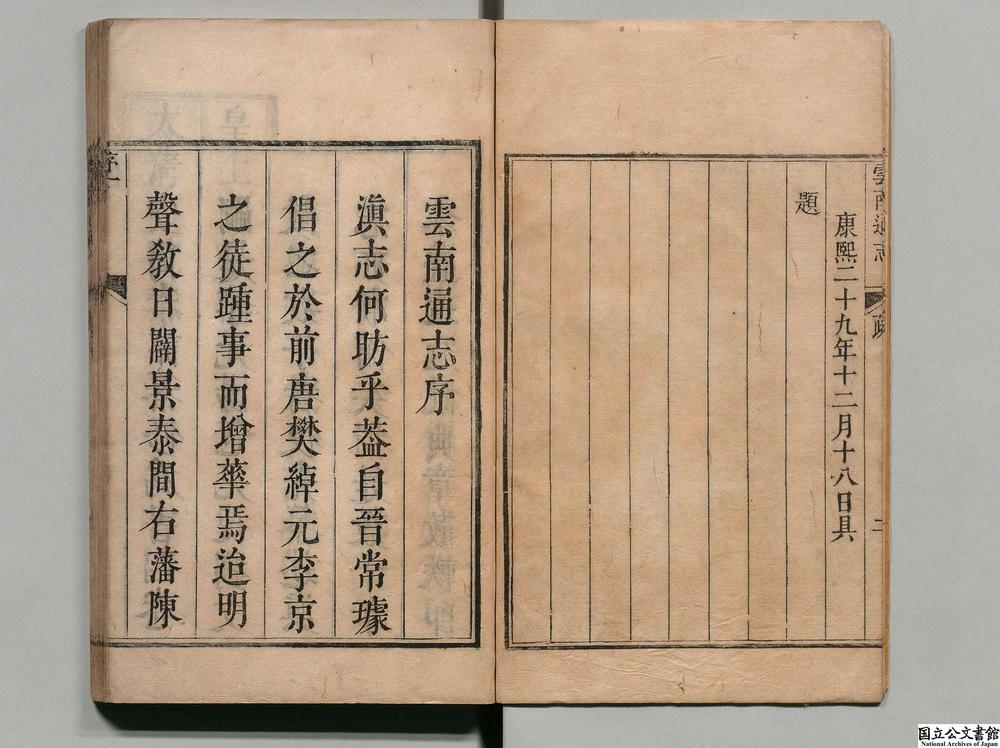 雲南通志
疏
二
康熙二十九年十二月十八日具
題
雲南通志序
滇志何昉乎葢自晉常璩
倡之於前唐樊綽元李京
之徒踵事而增華焉迨明
聲敎日闢景泰間右藩陳
序一
国立公文書館
National Archives of Japan